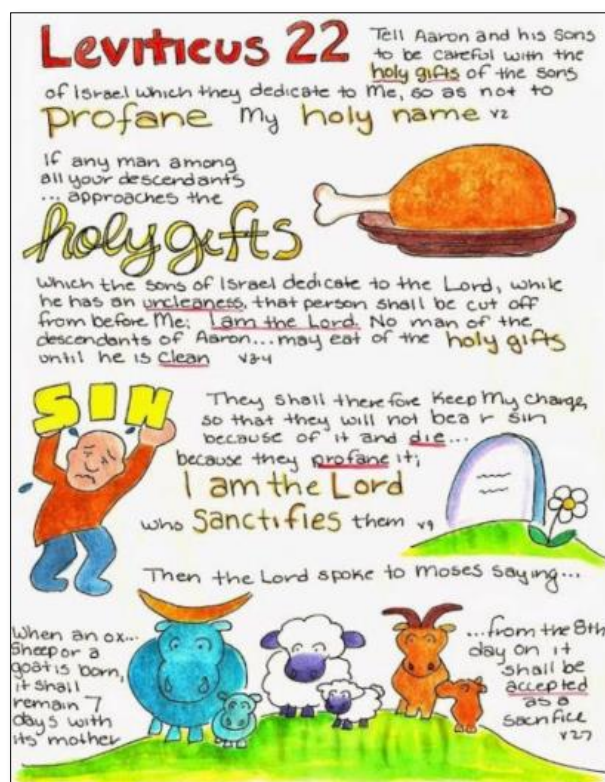 Leviticus 22
Tell Aaron and his sons
to be careful with the
holy gifts of the sons
of Israel which they dedicate to Me, so as not to
profane My holy name v2
If any man among
all your descendants
... approaches the
holy gifts
which the sons of Israel dedicate to the Lord, while
he has an uncleaness, that person shall be cut off
from before Me; I am the Lord. No man of the
descendants of Aaron... may eat of the holy gifts
until he is clean v3-4
SIN
They shall therefore keep My charge,
so that they will not bear sin
because of it and die...
because they profane it;
I am the Lord
who sanctifies them v9
Then the Lord spoke to Moses saying...
When an ox...
sheep or a
goat is born,
it shall
remain 7
days with
its mother
...from the 8th
day on it
shall be
accepted
as a
sacrifice
v27